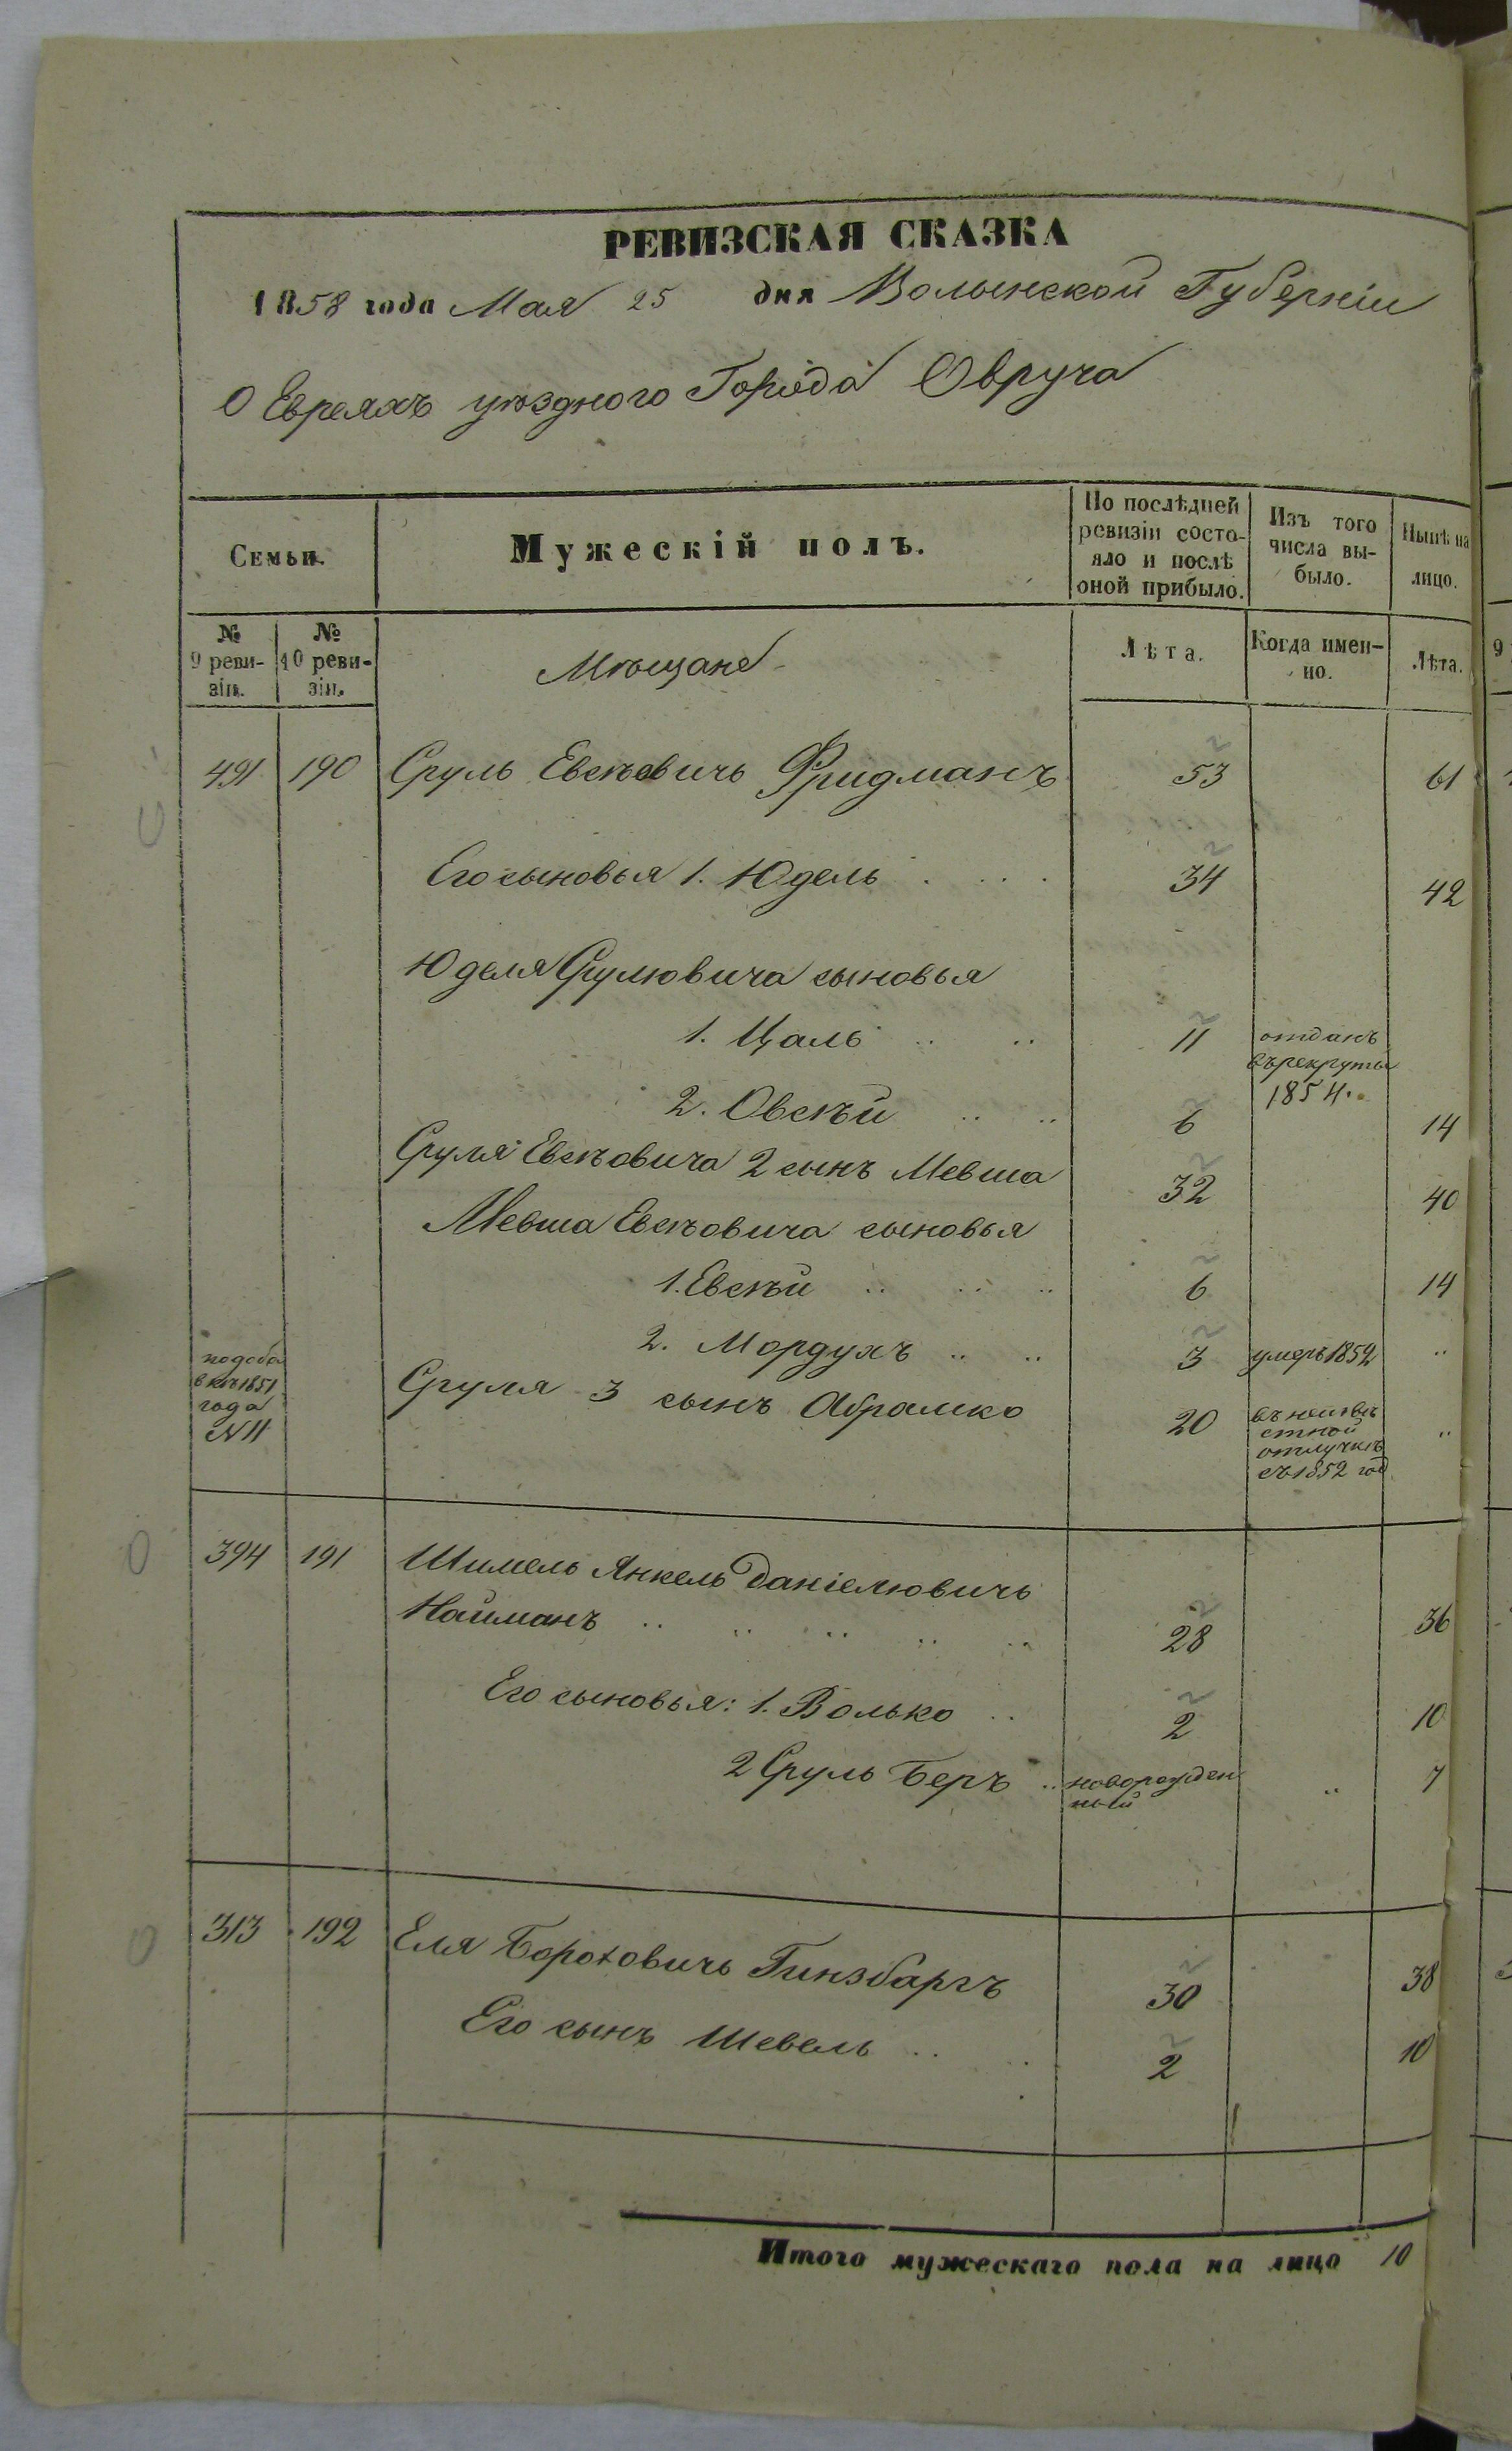 РЕВИЗСКАЯ СКАЗКА
1858 года Мая 25 дня Волынской Губерніи
О Евреяхъ уѣзднаго Города Овруча
Семьи.
Мужескій полъ.
По послѣдней ревизіи состояло и послѣ оной прибыло.
Изъ того числа выбыло.
Нынѣ на лицо.
№ 9 ревизіи.
№ 10 ревизіи.
Мѣщане
Лѣта.
Когда именно.
Лѣта.
491 190 Сруль Евсѣевичь Фридманъ 53 61
Его сыновья 1. Юдель 34 42
Юделя Срулювича сыновья
1. Цаль 11 отданъ въ рекруты 1854.
2. Овсѣй 6 14
Сруля Евсѣовича 2 сынъ Мевша 32 40
Мевша Евсѣовича сыновья
1. Евсѣй 6 14
2. Мордухъ 3 умеръ 1852
Сруля 3 сынъ Абрамко 20 въ неизвѣстной отлучкѣ съ 1852 год
1851
года
N 11
394 191 Шимель Янкель Даніелювичь
Найманъ 28 36
Его сыновья: 1. Волько 2 10
2 Сруль Беръ новорожденный 7
313 192 Еля Бороховичь Гинзбаргъ 30 38
Его сынъ Шевель 2 10
Итого мужескаго пола на лицо 10